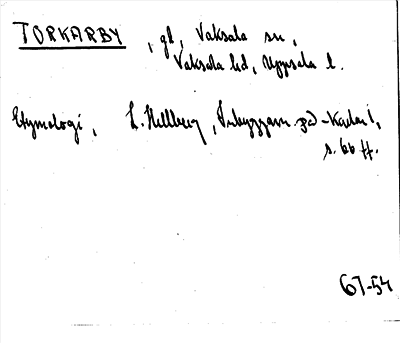 TORKARBY, gd, Vaksala sn,
Vaksala hd, Uppsala l.
Etymologi, L. Hellberg, Inbyggarn. på -karlar,
s. 66 ff.
67-54